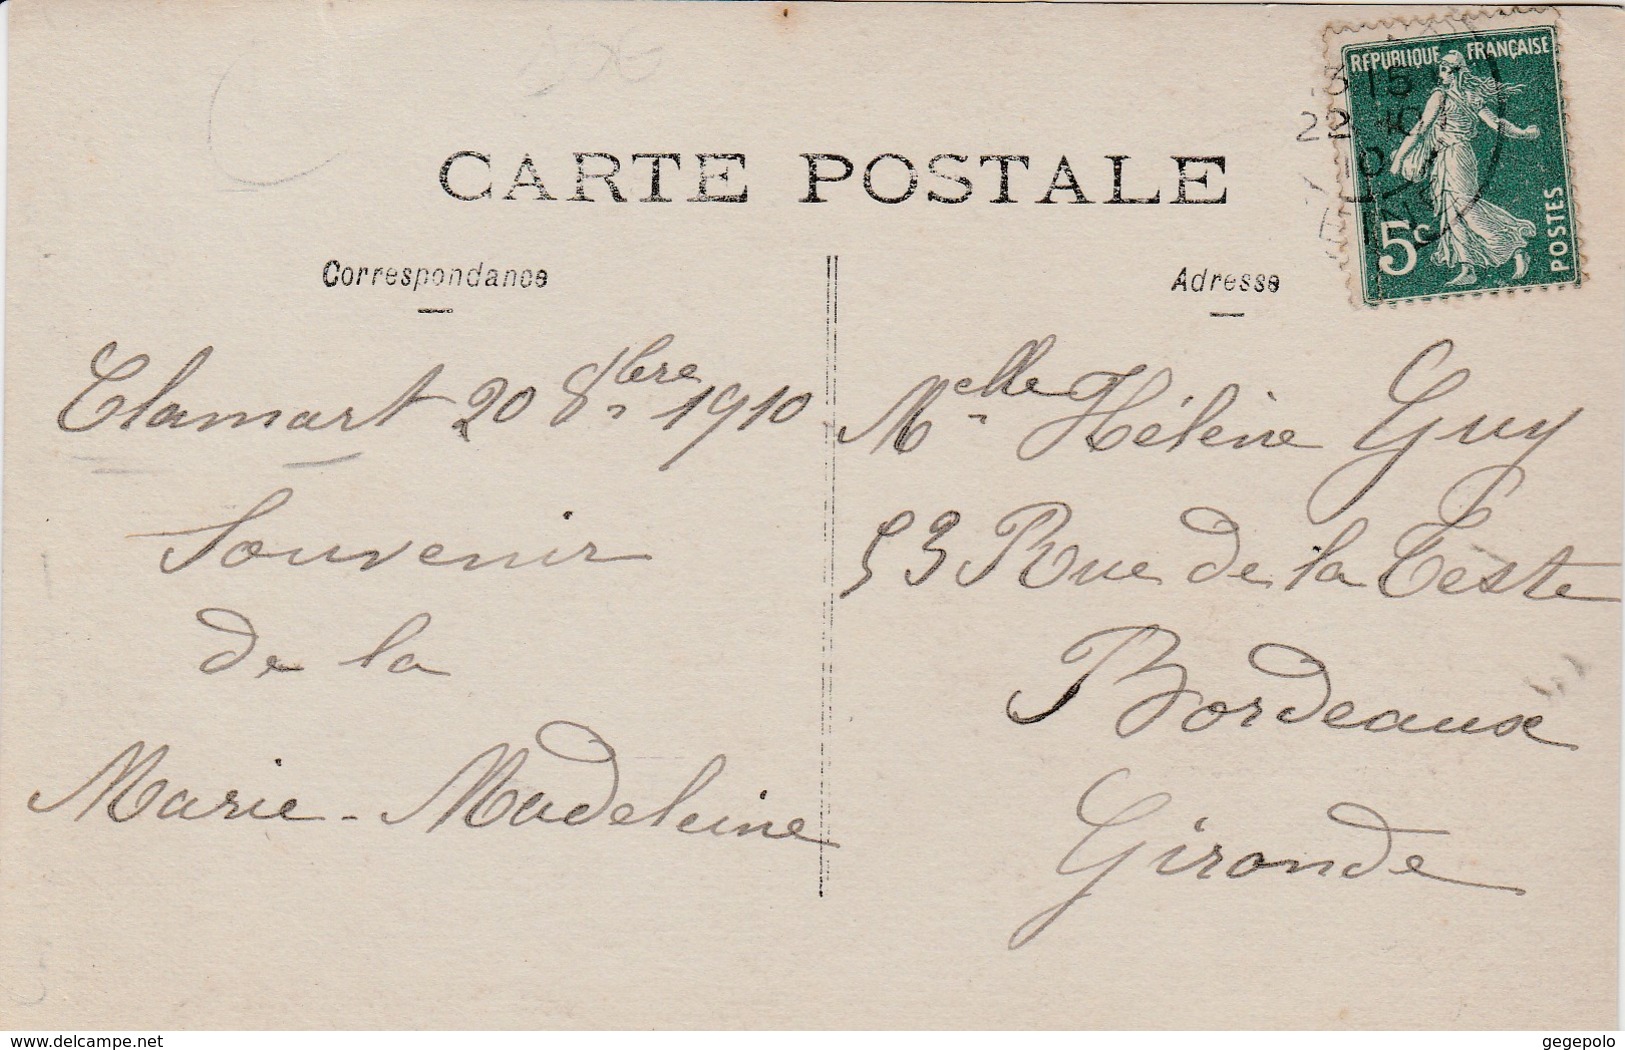 CARTE POSTALE
Correspondance
Adresse
RÉPUBLIQUE FRANÇAISE
5c
POSTES
3 15
22
Clamart 20 8bre 1910
Souvenir
de la
Marie-Madeleine
Mlle Hélène Guy
53 Rue de la Teste
Bordeaux
Gironde
www.delcampe.net
gegepolo